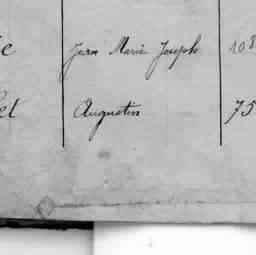 e Jean Marie Joseph 108
el Augustin 75